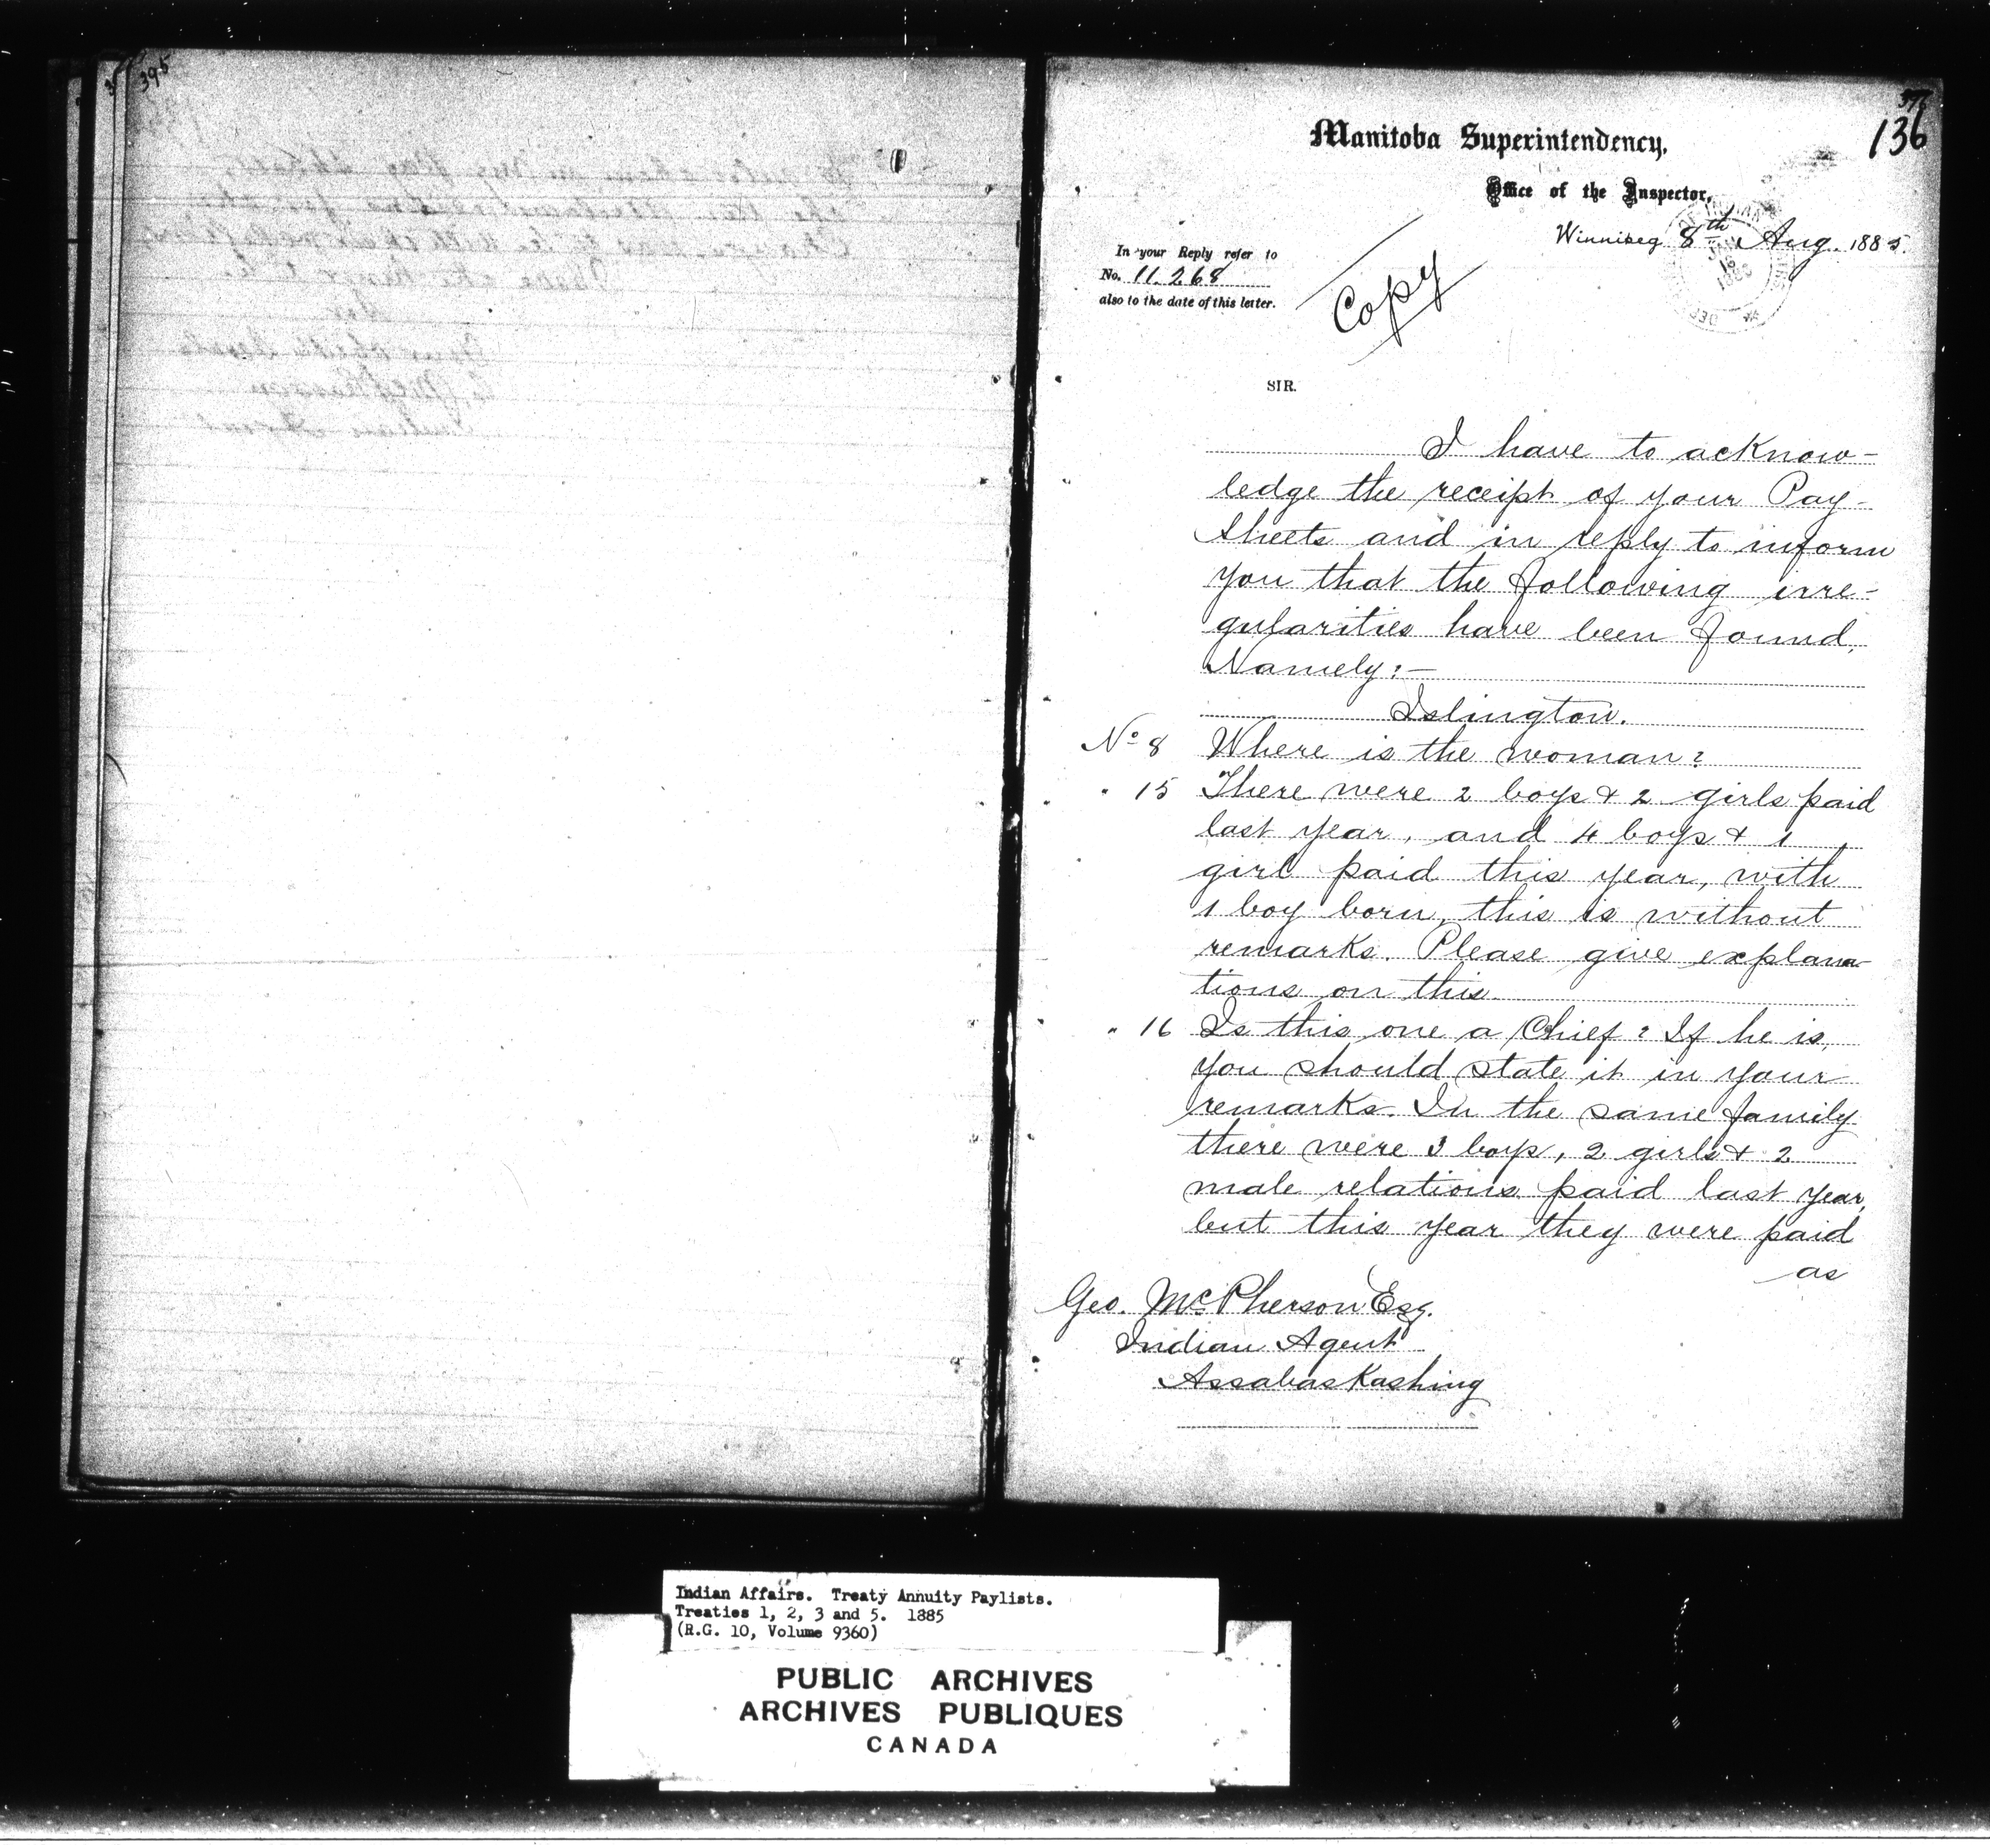 395
136
Manitoba Superintendency,
Office of the Inspector,
Winnipeg 8th Aug. 1885.
In your Reply refer to
No. 11.268
also to the date of this letter.
Copy
SIR.
I have to acknow-
ledge the receipt of your Pay-
Sheets and in reply to inform
you that the following irre-
gularities have been found,
Namely:-
Islington.
No 8 Where is the woman?
" 15 There were 2 boys & 2 girls paid
last year, and 4 boys & 1
girl paid this year, with
1 boy born, this is without
remarks. Please give explana-
tions on this.
" 16 Is this one a Chief? If he is,
you should state it in your
remarks. In the same family
there were 3 boys, 2 girls & 2
male relations paid last year,
but this year they were paid
as
Geo. McPherson Esq.
Indian Agent
Assabaskashing
Indian Affairs. Treaty Annuity Paylists.
Treaties 1, 2, 3 and 5. 1885
(R.G. 10, Volume 9360)
PUBLIC ARCHIVES
ARCHIVES PUBLIQUES
CANADA